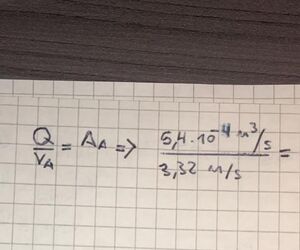 Q/V_A = A_A => 5,4·10⁻⁴ m³/s / 3,32 m/s =